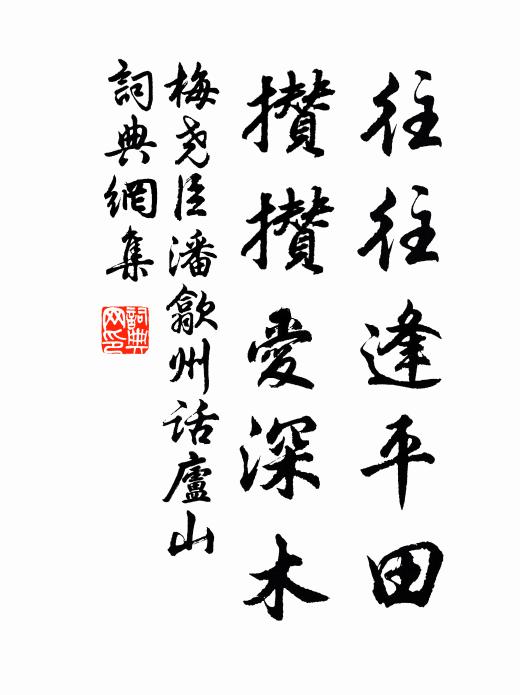 往往逢平田
攢攢愛深木
梅尧臣潘歙州话廬山
詞典網集
詞典
网印